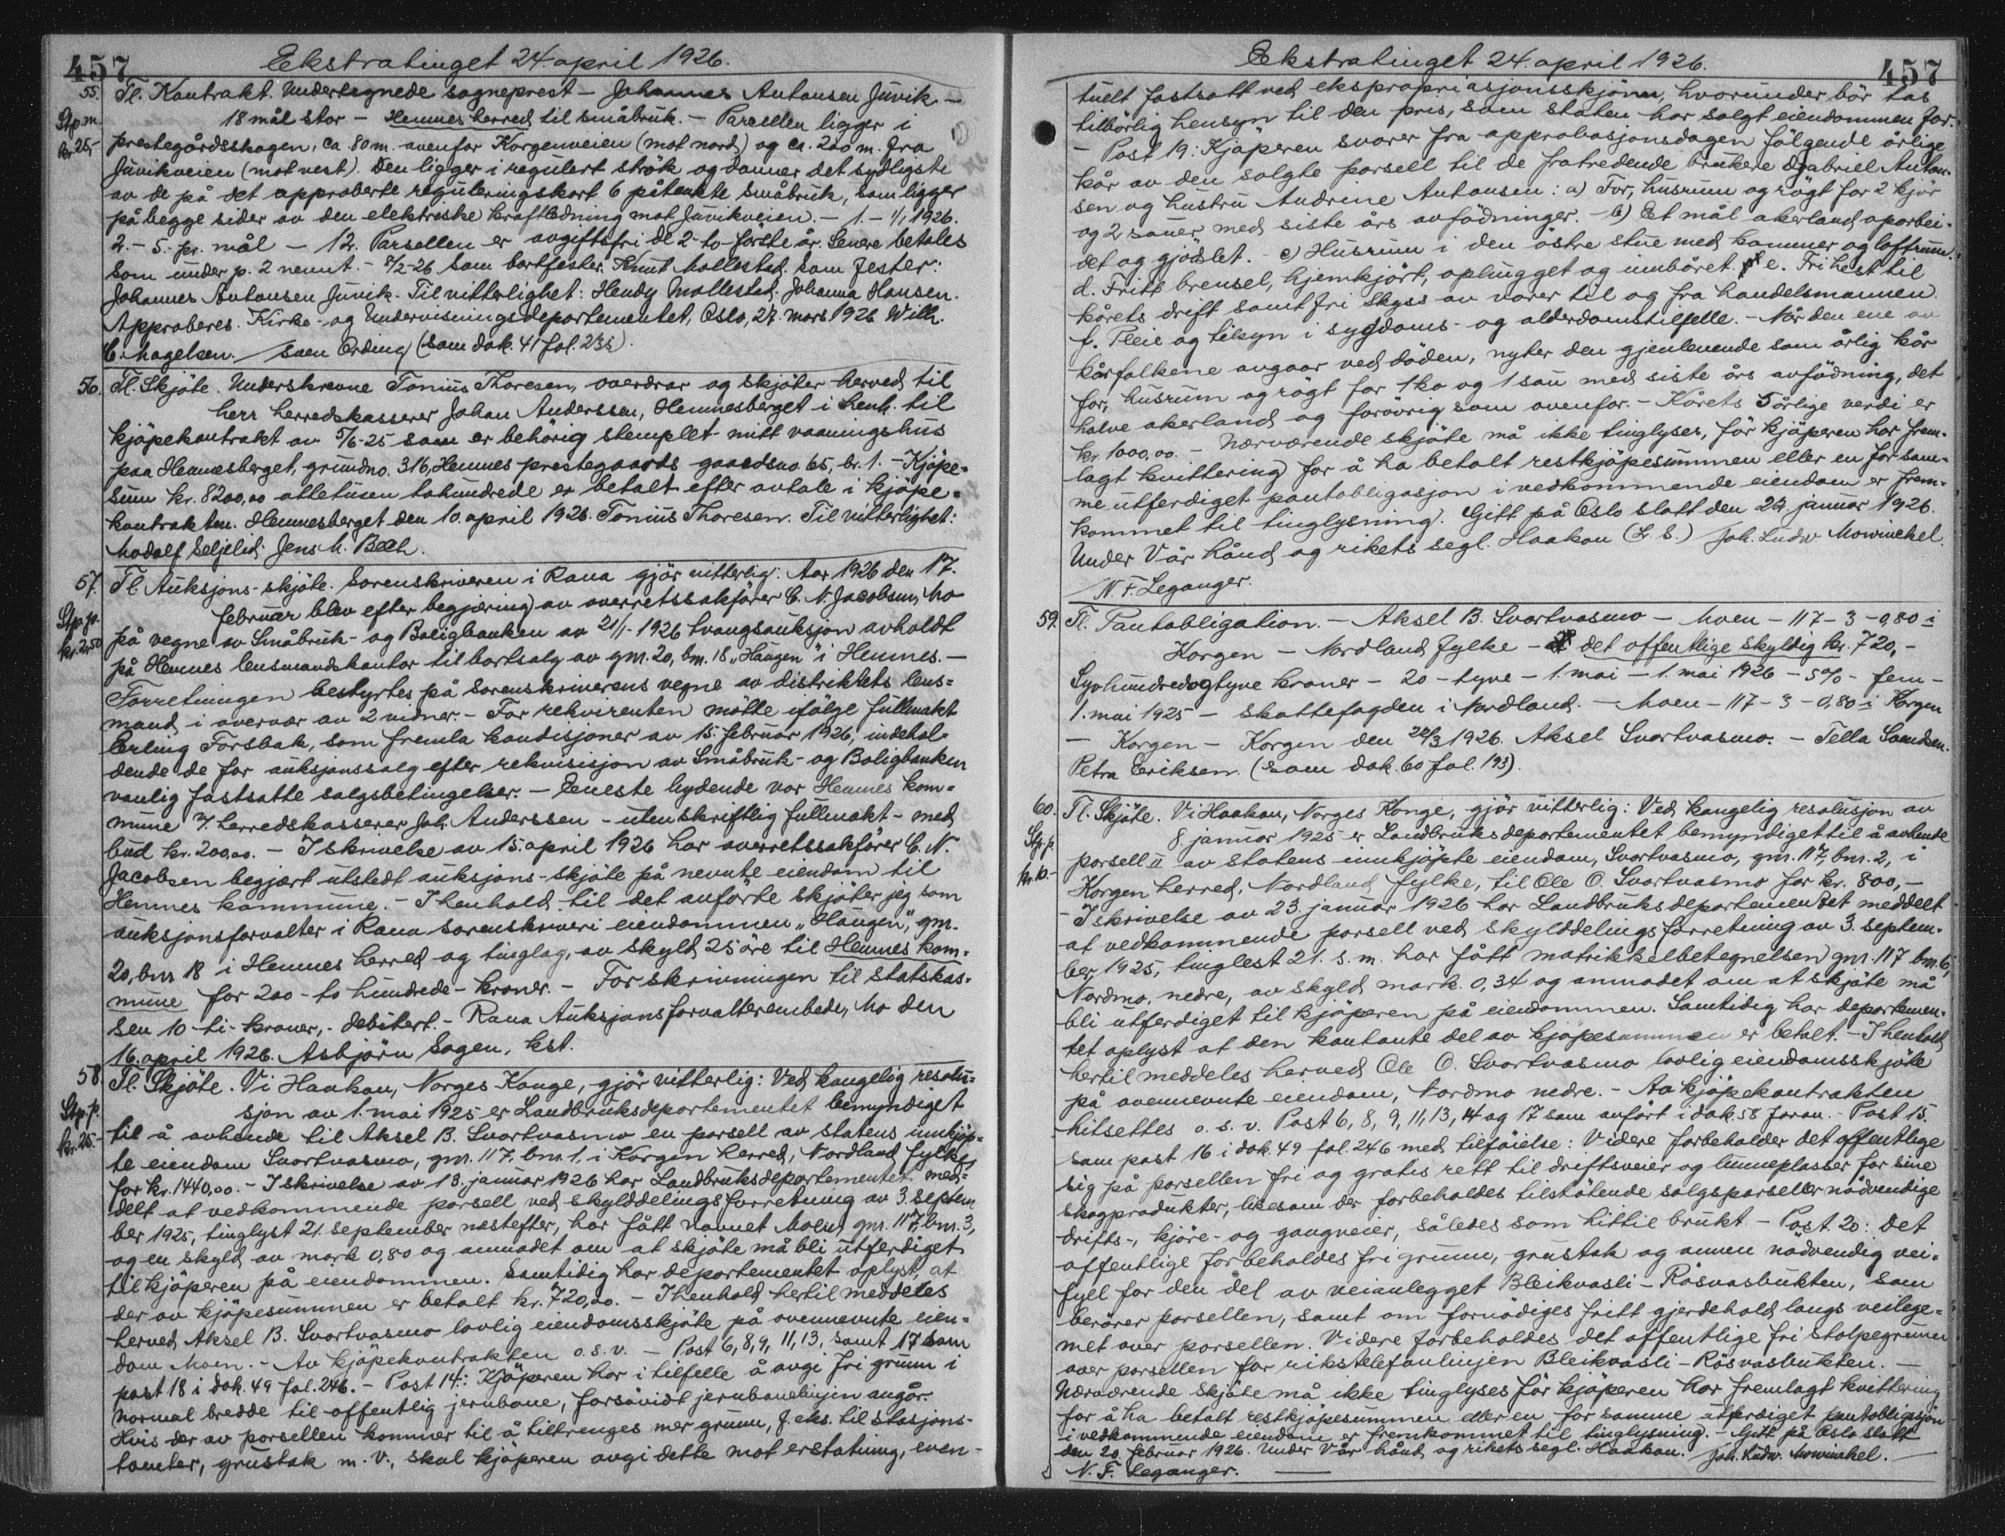 457
Ekstratinget 24. april 1926.
55. Tl. Kontrakt. Undertegnede sogneprest – Johannes Antonsen Juvik –
Stp. m. 18 mål stor – Hemnes herred til småbruk. – Parsellen ligger i
kr. 25,- prestegårdsskogen, ca 80 m. ovenfor Korgenveien (mot nord) og ca. 200 m. fra
Juvikveien (mot vest). Den ligger i regulert strøk og danner det sydligste
av de på det approberte reguleringskart 6 påtenkte småbruk, som ligger
på begge sider av den elektriske kraftledning mot Juvikveien. – 1. – 1/1 1926.
2. – 5. pr. mål – 12. Parsellen er avgiftsfri de 2 – to – förste år. Senere betales
som under p. 2 nevnt. – 7/2-26 Som bortfester: Knut Mollestad. Som fester:
Johannes Antonsen Juvik. Til vitterlighet: Hendy Mollestad. Johanna Hansen.
Approberes. Kirke- og Undervisningsdepartementet, Oslo, 27. mars 1926. Wilh.
C. Magelsen. Sven Ording (som dok. 41 fol. 232).
56. Tl. Skjöte. Underskrevne Tonius Thoresen, overdrar og skjöter herved til
herr herredskasserer Johan Anderssen, Hemnesberget i henh. til
kjöpekontrakt av 5/6-25 som er behörig stemplet mitt vaaningshus
paa Hemnesberget, grundno. 316, Hemnes prestegaards gaardsno. 65, br. 1. – Kjöpe-
sum kr. 8200,00 ottetusen tohundrede er betalt efter avtale i kjöpe-
kontrakten. Hemnesberget den 10. april 1926. Tonius Thoresen. Til vitterlighet:
Modolf Seljelid. Jens M. Bech.
57. Tl. Auksjons-skjöte. Sorenskriveren i Rana gjör vitterlig: Aar 1926 den 17.
februar blev efter begjæring av overretssakförer C. N. Jacobsen, Mo
Stp. p. på vegne av Småbruk- og Boligbanken av 21/1-1926 tvangsauksjon avholdt
kr. 2,50 på Hemnes lensmandskontor til bortsalg av gnr. 20, bnr. 18 „Haugen" i Hemnes. –
Forretningen bestyrtes på Sorenskriverens vegne av distriktets lens-
mand i overvær av 2 vidner. – For rekvirenten mötte ifölge fullmakt
Erling Forsbak, som fremla kondisjoner av 15. februar 1926, indehol-
dende de for auksjonssalg efter rekvisisjon av Småbruk- og Boligbanken
vanlig fastsatte salgsbetingelser. – Eneste bydende var Hemnes kom-
mune v/ herredskasserer Joh. Anderssen – uten skriftlig fullmakt – med
bud kr. 200,00. – I skrivelse av 15. april 1926 har overretssakförer C. N.
Jacobsen begjært utstedt auksjons-skjöte på nevnte eiendom til
Hemnes kommune. – I henhold til det anförte skjöter jeg som
auksjonsforvalter i Rana sorenskriveri eiendommen „Haugen", gnr.
20, bnr. 18 i Hemnes herred og tinglag, av skyld 25 öre til Hemnes kom-
mune for 200 – to hundrede – kroner. – For skrivningen til statskas-
sen 10 – ti – kroner,- debitert. – Rana Auksjonsforvalterembede, Mo den
16. april 1926. Asbjörn Sagen, kst.
58. Tl. Skjöte. Vi Haakon, Norges Konge, gjör vitterlig: Ved kongelig resolu-
Stp. p. sjon av 1. mai 1925 er Landbruksdepartementet bemyndiget
kr. 25.- til å avhende til Aksel B. Svortvasmo en parsell av statens innkjöp-
te eiendom Svortvasmo, gnr. 117, bnr. 1, i Korgen herred, Nordland fylke,
for kr. 1440,00. – I skrivelse av 13. januar 1926 har Landbruksdepartementet med-
delt at vedkommende parsell ved skylddelingsforretning av 3. septem-
ber 1925, tinglyst 21. september næstefter, har fått navnet Moen, gnr. 117, bnr. 3,
og en skyld av mark 0,80 og anmodet om at skjöte må bli utferdiget
til kjöperen på eiendommen. Samtidig har departementet oplyst, at
der av kjöpesummen er betalt kr. 720,00. – I henhold hertil meddeles
herved Aksel B. Svortvasmo lovlig eiendomsskjöte på ovennevnte eien-
dom Moen. – Av kjöpekontrakten o.s.v. – Post 6, 8, 9, 11, 13, samt 17 som
post 18 i dok. 49 fol. 246. – Post 14: Kjöperen har i tilfelle å avgi fri grunn i
normal bredde til offentlig jernbane, forsåvidt jernbanelinjen angår.
Hvis der av parsellen kommer til å tiltrenges mer grunn, f. eks. til stasjons-
tomter, grustak m. v., skal kjöperen avgi dette mot erstatning, even-
457
Ekstratinget 24. april 1926.
tuelt fastsatt ved ekspropriasjonsskjönn, hvorunder bör tas
tilbörlig hensyn til den pris, som staten har solgt eiendommen for.
– Post 19: Kjöperen svarer fra approbasjonsdagen fölgende årlige
kår av den solgte parsell til de fratredende brukere Gabriel Anton-
sen og hustru Andrine Antonsen: a) For, husrum og rögt for 2 kjör
og 2 sauer med siste års avfödninger. – b) Et mål akerland oparbei-
det og gjödslet. – c) Husrum i den östre stue med kammer og loftrum.
d. Fritt brensel, hjemkjört, ophugget og innbåret. e. Fri hest til
kårets drift samt fri skyss av varer til og fra handelsmannen.
f. Pleie og tilsyn i sygdoms- og alderdomstilfelle. – Når den ene av
kårfolkene avgaar ved döden, nyter den gjenlevende som årlig kår
for, husrum og rögt for 1 ko og 1 sau med siste års avfödning, det
halve akerland og forövrig som ovenfor. – Kårets 5 årlige verdi er
kr. 1000,00. – Nærværende skjöte må ikke tinglyses, för kjöperen har frem-
lagt kvittering for å ha betalt restkjöpesummen eller en for sam-
me utferdiget pantobligasjon i vedkommende eiendom er frem-
kommet til tinglysning. Gitt på Oslo slott den 22. januar 1926.
Under Vår hånd og rikets segl. Haakon (L. S.) Joh. Ludw. Mowinckel.
N. F. Leganger.
59. Tl. Pantobligation. – Aksel B. Svortvasmo – Moen – 117 – 3 – 0,80 i
Korgen – Nordland fylke – det offentlige skyldig kr. 720,-
Syvhundredogtyve kroner – 20 – tyve – 1. mai – 1. mai 1926 – 5% – fem –
1. mai 1925 – skattefogden i Nordland. – Moen – 117 – 3 – 0,80 i Korgen
– Korgen – Korgen den 24/3 1926. Aksel Svortvasmo. – Tella Svendsen.
Petra Eriksen. (som dok. 60 fol. 193).
60. Tl. Skjöte. Vi Haakon, Norges Konge, gjör vitterlig: Ved kongelig resolusjon av
Stp. p. 8. januar 1925 er Landbruksdepartementet bemyndiget til å avhende
kr. 10.- parsell II av statens innkjöpte eiendom, Svortvasmo, gnr. 117, bnr. 2, i
Korgen herred, Nordland fylke, til Ole O. Svortvasmo for kr. 800,–
– I skrivelse av 23. januar 1926 har Landbruksdepartementet meddelt
at vedkommende parsell ved skylddelingsforretning av 3. septem-
ber 1925, tinglest 21. s. m. har fått matrikkelbetegnelsen gnr. 117 bnr. 6,
Nordmo, nedre, av skyld mark 0,34 og anmodet om at skjöte må
bli utferdiget til kjöperen på eiendommen. Samtidig har departemen-
tet oplyst at den kontante del av kjöpesummen er betalt. – I henhold
hertil meddeles herved Ole O. Svortvasmo lovlig eiendomsskjöte
på ovennevnte eiendom, Nordmo nedre. – Av kjöpekontrakten
hitsettes o. s. v. Post 6, 8, 9, 11, 13, 14 og 17 som anfört i dok. 58 foran. – Post 15.
som post 16 i dok. 49 fol. 246 med tilföielse: Videre forbeholder det offentlige
sig på parsellen fri og gratis rett til driftsveier og lunneplasser for sine
skogprodukter, likesom der forbeholdes tilstötende salgsparseller nödvendige
drifts-, kjöre- og gangveier, således som hittil brukt. – Post 20: Det
offentlige forbeholdes fri grunn, grustak og annen nödvendig vei-
fyll for den del av veianlegget Bleikvasli – Rösvasbukten, som
berörer parsellen, samt om fornödiges fritt gjerdehold langs veilege-
met over parsellen. Videre forbeholdes det offentlige fri stolpegrunn
over parsellen for rikstelefonlinjen Bleikvasli – Rösvasbukten. –
Nærværende skjöte må ikke tinglyses för kjöperen har fremlagt kvittering
for å ha betalt restkjöpesummen eller en for samme utferdiget pantobligasjon
i vedkommende eiendom er fremkommet til tinglysning. – Gitt på Oslo slott
den 20. februar 1926. Under Vår hånd og rikets segl. Haakon. Joh. Ludw. Mowinckel. –
N. F. Leganger.